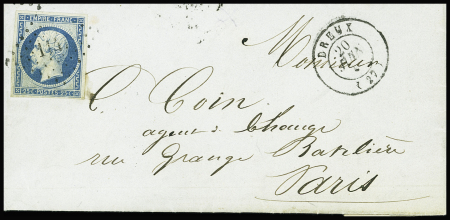 EMPIRE FRANC.
25c POSTES 25c
DREUX
20
(27)
Monsieur
C. Coin
agent de Change
rue Grange Batelière
Paris